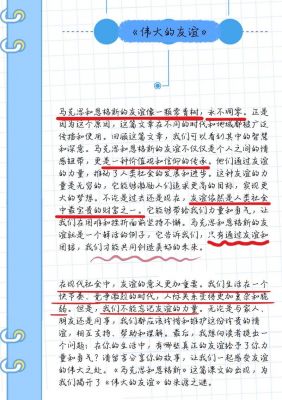 《伟大的友谊》
马克思和恩格斯的友谊像一颗常青树，永不凋零。正是
因为这个原因，这篇文章在不同的时代和地域都被广泛
传播和使用。回顾这篇文章，我们可以看到其中的智慧
和深意。马克思和恩格斯的友谊不仅仅是个人之间的情
感纽带，更是一种价值观和信仰的传承。他们通过友谊
的力量，推动了人类社会的发展和进步。这种友谊的力
量是无穷的，它能够激励人们追求更高的目标，实现更
大的梦想。不论是过去还是现在，友谊依然是人类社会
中最宝贵的财富之一。它能够带给我们力量和勇气，让
我们在困难和挫折面前坚持不懈。马克思和恩格斯的友
谊就是一个鲜活的例子，它告诉我们，只有通过友谊和
团结，我们才能共同创造美好的未来。
在现代社会中，友谊的意义更加重要。我们生活在一个
快节奏、竞争激烈的时代，人际关系变得更加复杂和脆
弱。但是，我们不能忘记友谊的力量。无论是与家人、
朋友还是同事，我们都应该珍惜和维护这份珍贵的情
谊，相互支持、帮助和理解。最后，我想向读者提出一
个问题：在你的生活中，有哪些真正的友谊给予了你力
量和勇气？请留言分享你的故事，让我们一起感受友谊
的伟大之处。《马克思和恩格斯》这篇课文的出现，为
我们揭开了《伟大的友谊》的来源之谜。